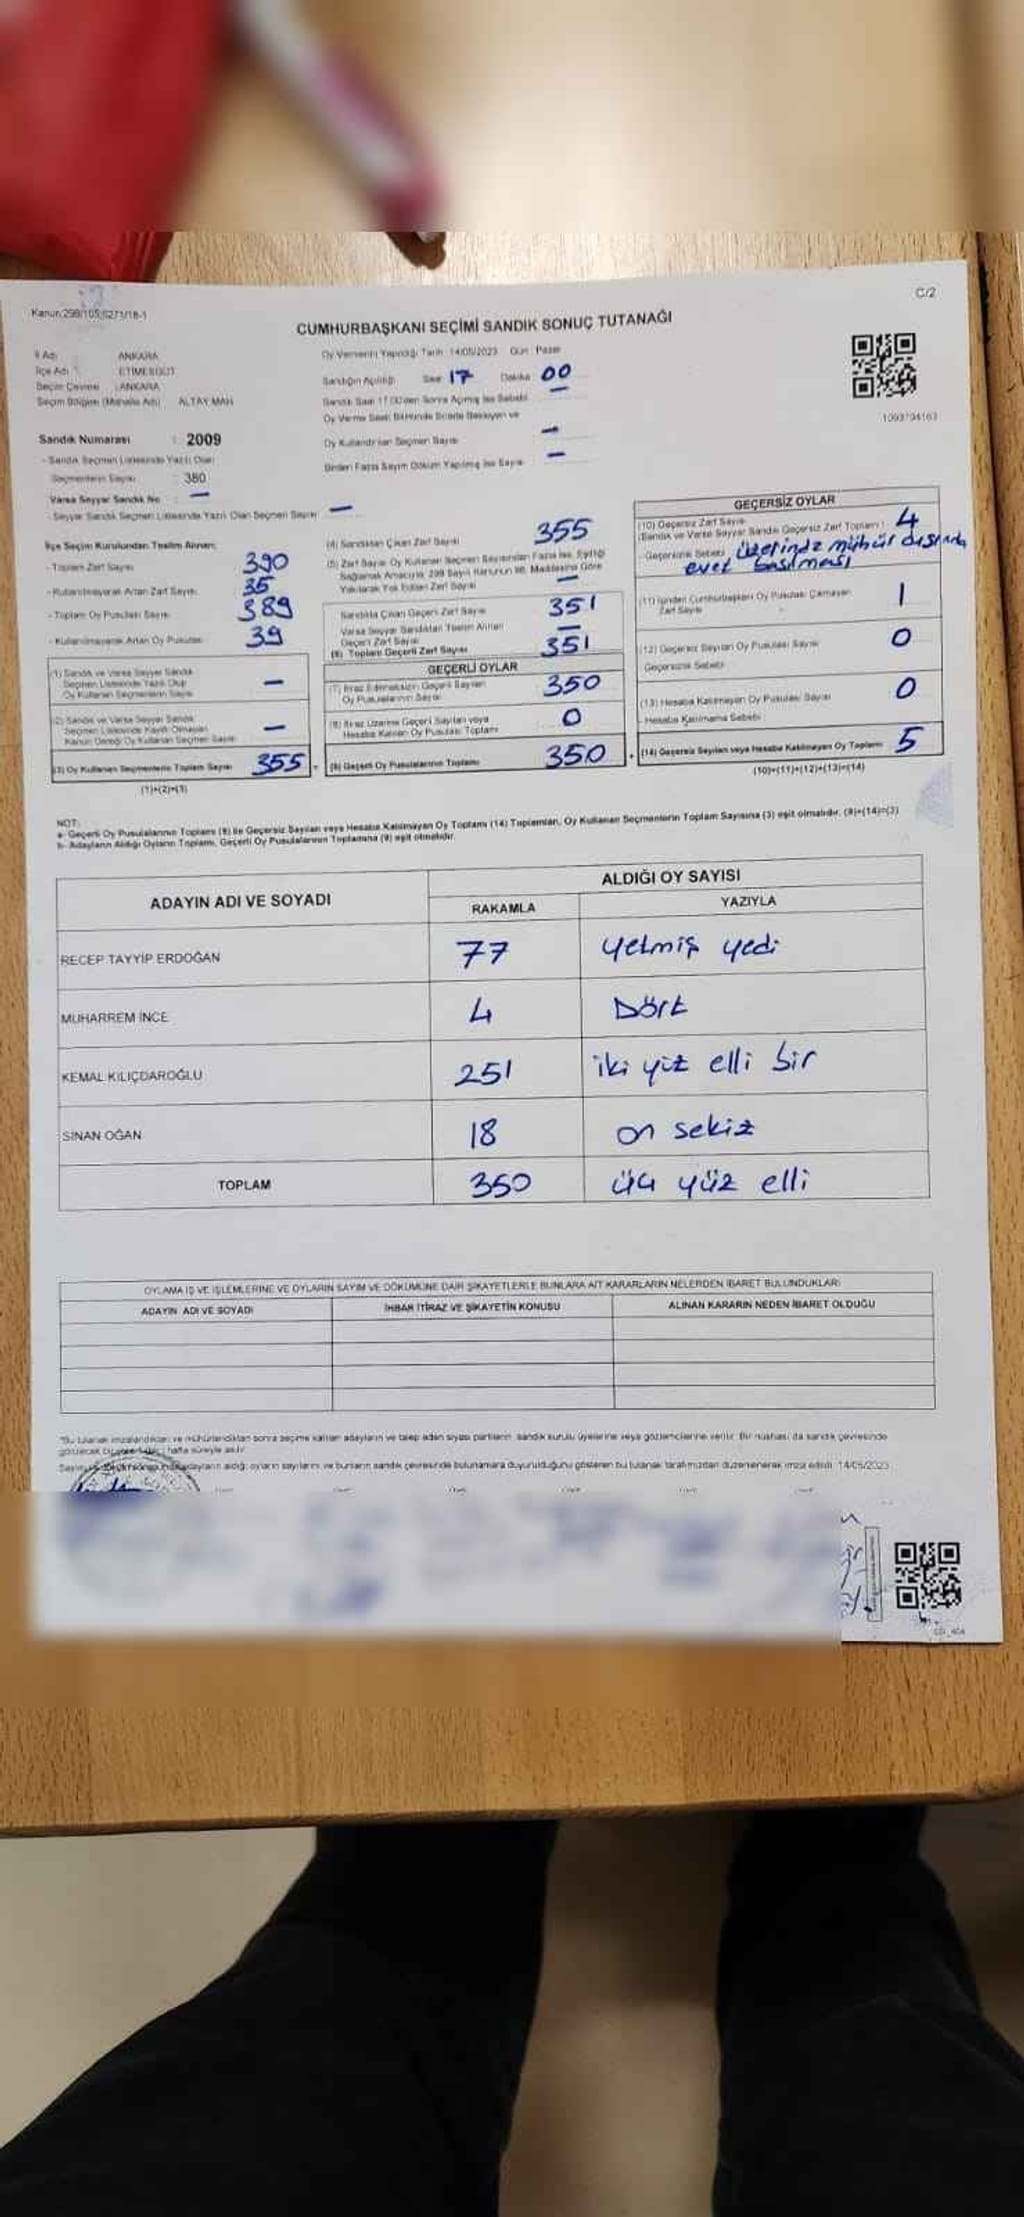 Kanun:298/105,6271/18-1
C/2
CUMHURBAŞKANI SEÇİMİ SANDIK SONUÇ TUTANAĞI
İl Adı ANKARA
İlçe Adı ETİMESGUT
Seçim Çevresi : ANKARA
Seçim Bölgesi (Mahalle Adı) ALTAY MAH
Sandık Numarası : 2009
- Sandık Seçmen Listesinde Yazılı Olan
Seçmenlerin Sayısı : 380
Varsa Seyyar Sandık No : —
- Seyyar Sandık Seçmen Listesinde Yazılı Olan Seçmen Sayısı —
Oy Vermenin Yapıldığı Tarih : 14/05/2023 Gün : Pazar
Sandığın Açıldığı Saat 17 Dakika 00
Sandık Saat 17.00'den Sonra Açılmış İse Sebebi —
Oy Verme Saati Bitiminde Sırada Bekleyen ve
Oy Kullandırılan Seçmen Sayısı —
Birden Fazla Sayım Döküm Yapılmış İse Sayısı —
1093794163
İlçe Seçim Kurulundan Teslim Alınan;
- Toplam Zarf Sayısı 390
- Kullanılmayarak Artan Zarf Sayısı 35
- Toplam Oy Pusulası Sayısı 389
- Kullanılmayarak Artan Oy Pusulası 39
(1) Sandık ve Varsa Seyyar Sandık
Seçmen Listesinde Yazılı Olup
Oy Kullanan Seçmenlerin Sayısı —
(2) Sandık ve Varsa Seyyar Sandık
Seçmen Listesinde Kayıtlı Olmayan
Kanun Gereği Oy Kullanan Seçmen Sayısı —
(3) Oy Kullanan Seçmenlerin Toplam Sayısı 355
(1)+(2)=(3)
(4) Sandıktan Çıkan Zarf Sayısı 355
(5) Zarf Sayısı Oy Kullanan Seçmen Sayısından Fazla İse, Eşitliği
Sağlamak Amacıyla 298 Sayılı Kanunun 98. Maddesine Göre
Yakılarak Yok Edilen Zarf Sayısı —
Sandıkta Çıkan Geçerli Zarf Sayısı 351
Varsa Seyyar Sandıktan Teslim Alınan
Geçerli Zarf Sayısı —
(6) Toplam Geçerli Zarf Sayısı 351
GEÇERLİ OYLAR
(7) İtiraz Edilmeksizin Geçerli Sayılan
Oy Pusulalarının Sayısı 350
(8) İtiraz Üzerine Geçerli Sayılan veya
Hesaba Katılan Oy Pusulası Toplamı 0
(9) Geçerli Oy Pusulalarının Toplamı 350
GEÇERSİZ OYLAR
(10) Geçersiz Zarf Sayısı
(Sandık ve Varsa Seyyar Sandık Geçersiz Zarf Toplamı) 4
-Geçersizlik Sebebi üzerinde mühür dışında
evet basılması
(11) İçinden Cumhurbaşkanı Oy Pusulası Çıkmayan
Zarf Sayısı 1
(12) Geçersiz Sayılan Oy Pusulası Sayısı 0
Geçersizlik Sebebi
(13) Hesaba Katılmayan Oy Pusulası Sayısı 0
- Hesaba Katılmama Sebebi
(14) Geçersiz Sayılan veya Hesaba Katılmayan Oy Toplamı 5
(10)+(11)+(12)+(13)=(14)
NOT:
a- Geçerli Oy Pusulalarının Toplamı (9) ile Geçersiz Sayılan veya Hesaba Katılmayan Oy Toplamı (14) Toplamları, Oy Kullanan Seçmenlerin Toplam Sayısına (3) eşit olmalıdır. (9)+(14)=(3)
b- Adayların Aldığı Oyların Toplamı, Geçerli Oy Pusulalarının Toplamına (9) eşit olmalıdır.
ADAYIN ADI VE SOYADI
ALDIĞI OY SAYISI
RAKAMLA YAZIYLA
RECEP TAYYİP ERDOĞAN 77 yetmiş yedi
MUHARREM İNCE 4 Dört
KEMAL KILIÇDAROĞLU 251 iki yüz elli bir
SİNAN OĞAN 18 on sekiz
TOPLAM 350 üç yüz elli
OYLAMA İŞ VE İŞLEMLERİNE VE OYLARIN SAYIM VE DÖKÜMÜNE DAİR ŞİKAYETLERLE BUNLARA AİT KARARLARIN NELERDEN İBARET BULUNDUKLARI
ADAYIN ADI VE SOYADI İHBAR İTİRAZ VE ŞİKAYETİN KONUSU ALINAN KARARIN NEDEN İBARET OLDUĞU
"Bu tutanak imzalandıktan ve mühürlendikten sonra seçime katılan adayların ve talep eden siyasi partilerin sandık kurulu üyelerine veya gözlemcilerine verilir. Bir nüshası da sandık çevresinde
görülecek bir yere bir hafta süreyle asılır.
adayların aldığı oyların sayılarını ve bunların sandık çevresinde bulunanlara duyurulduğunu gösteren bu tutanak tarafımızdan düzenlenerek imza edildi. 14/05/2023